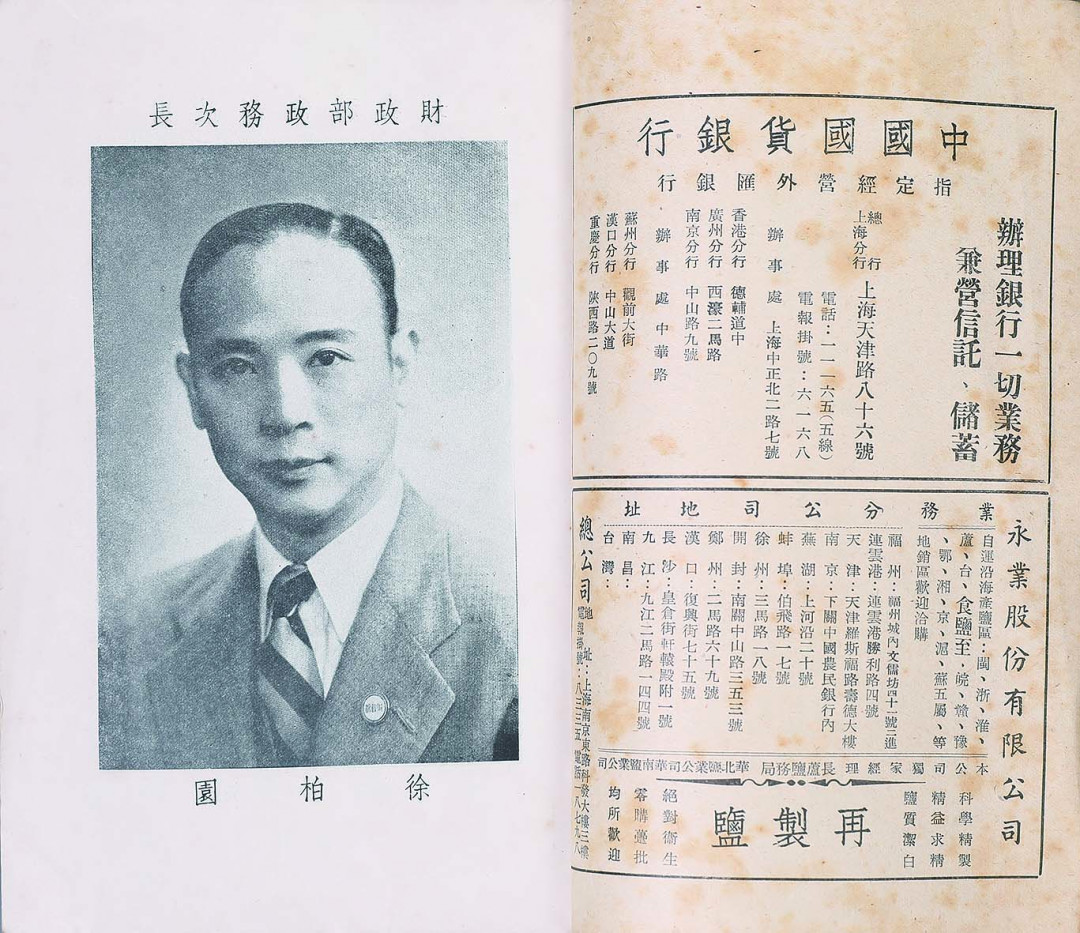 財政部政務次長
徐柏園
中國國貨銀行
指定經營外匯銀行
辦理銀行一切業務
兼營信託、儲蓄
總行
上海分行
上海天津路八十六號
電話：一一一六五（五線）
電報掛號：六一六八
辦事處 上海中正北二路七號
香港分行 德輔道中
廣州分行 西濠二馬路
南京分行 中山路九號
辦事處 中華路
蘇州分行 觀前大街
漢口分行 中山大道
重慶分行 陝西路二〇九號
永業股份有限公司
業務
自運沿海產鹽區：閩、浙、淮、
蘆、台、食鹽至，皖、贛、豫
、鄂、湘、京、滬、蘇五屬、等
地銷區歡迎洽購
分公司地址
福州：福州城內文儒坊四十一號三進
連雲港：連雲港勝利路四號
天津：天津羅斯福路壽德大樓
南京：下關中國農民銀行內
蕪湖：上河沿二十號
蚌埠：伯飛路一七號
徐州：三馬路一八號
開封：南關中山路三五三號
鄭州：二馬路六十九號
漢口：復興街七十五號
長沙：皇倉街軒轅殿附一號
九江：九江二馬路一四四號
南昌：
台灣：
總公司
地址：上海南京東路科發大樓三樓
電報掛號：八三三五 電話一八七九八
本公司獨家經理長蘆鹽務局 華北鹽業公司 華南鹽業公司
再製鹽
科學精製
精益求精
鹽質潔白
絕對衞生
零購躉批
均所歡迎